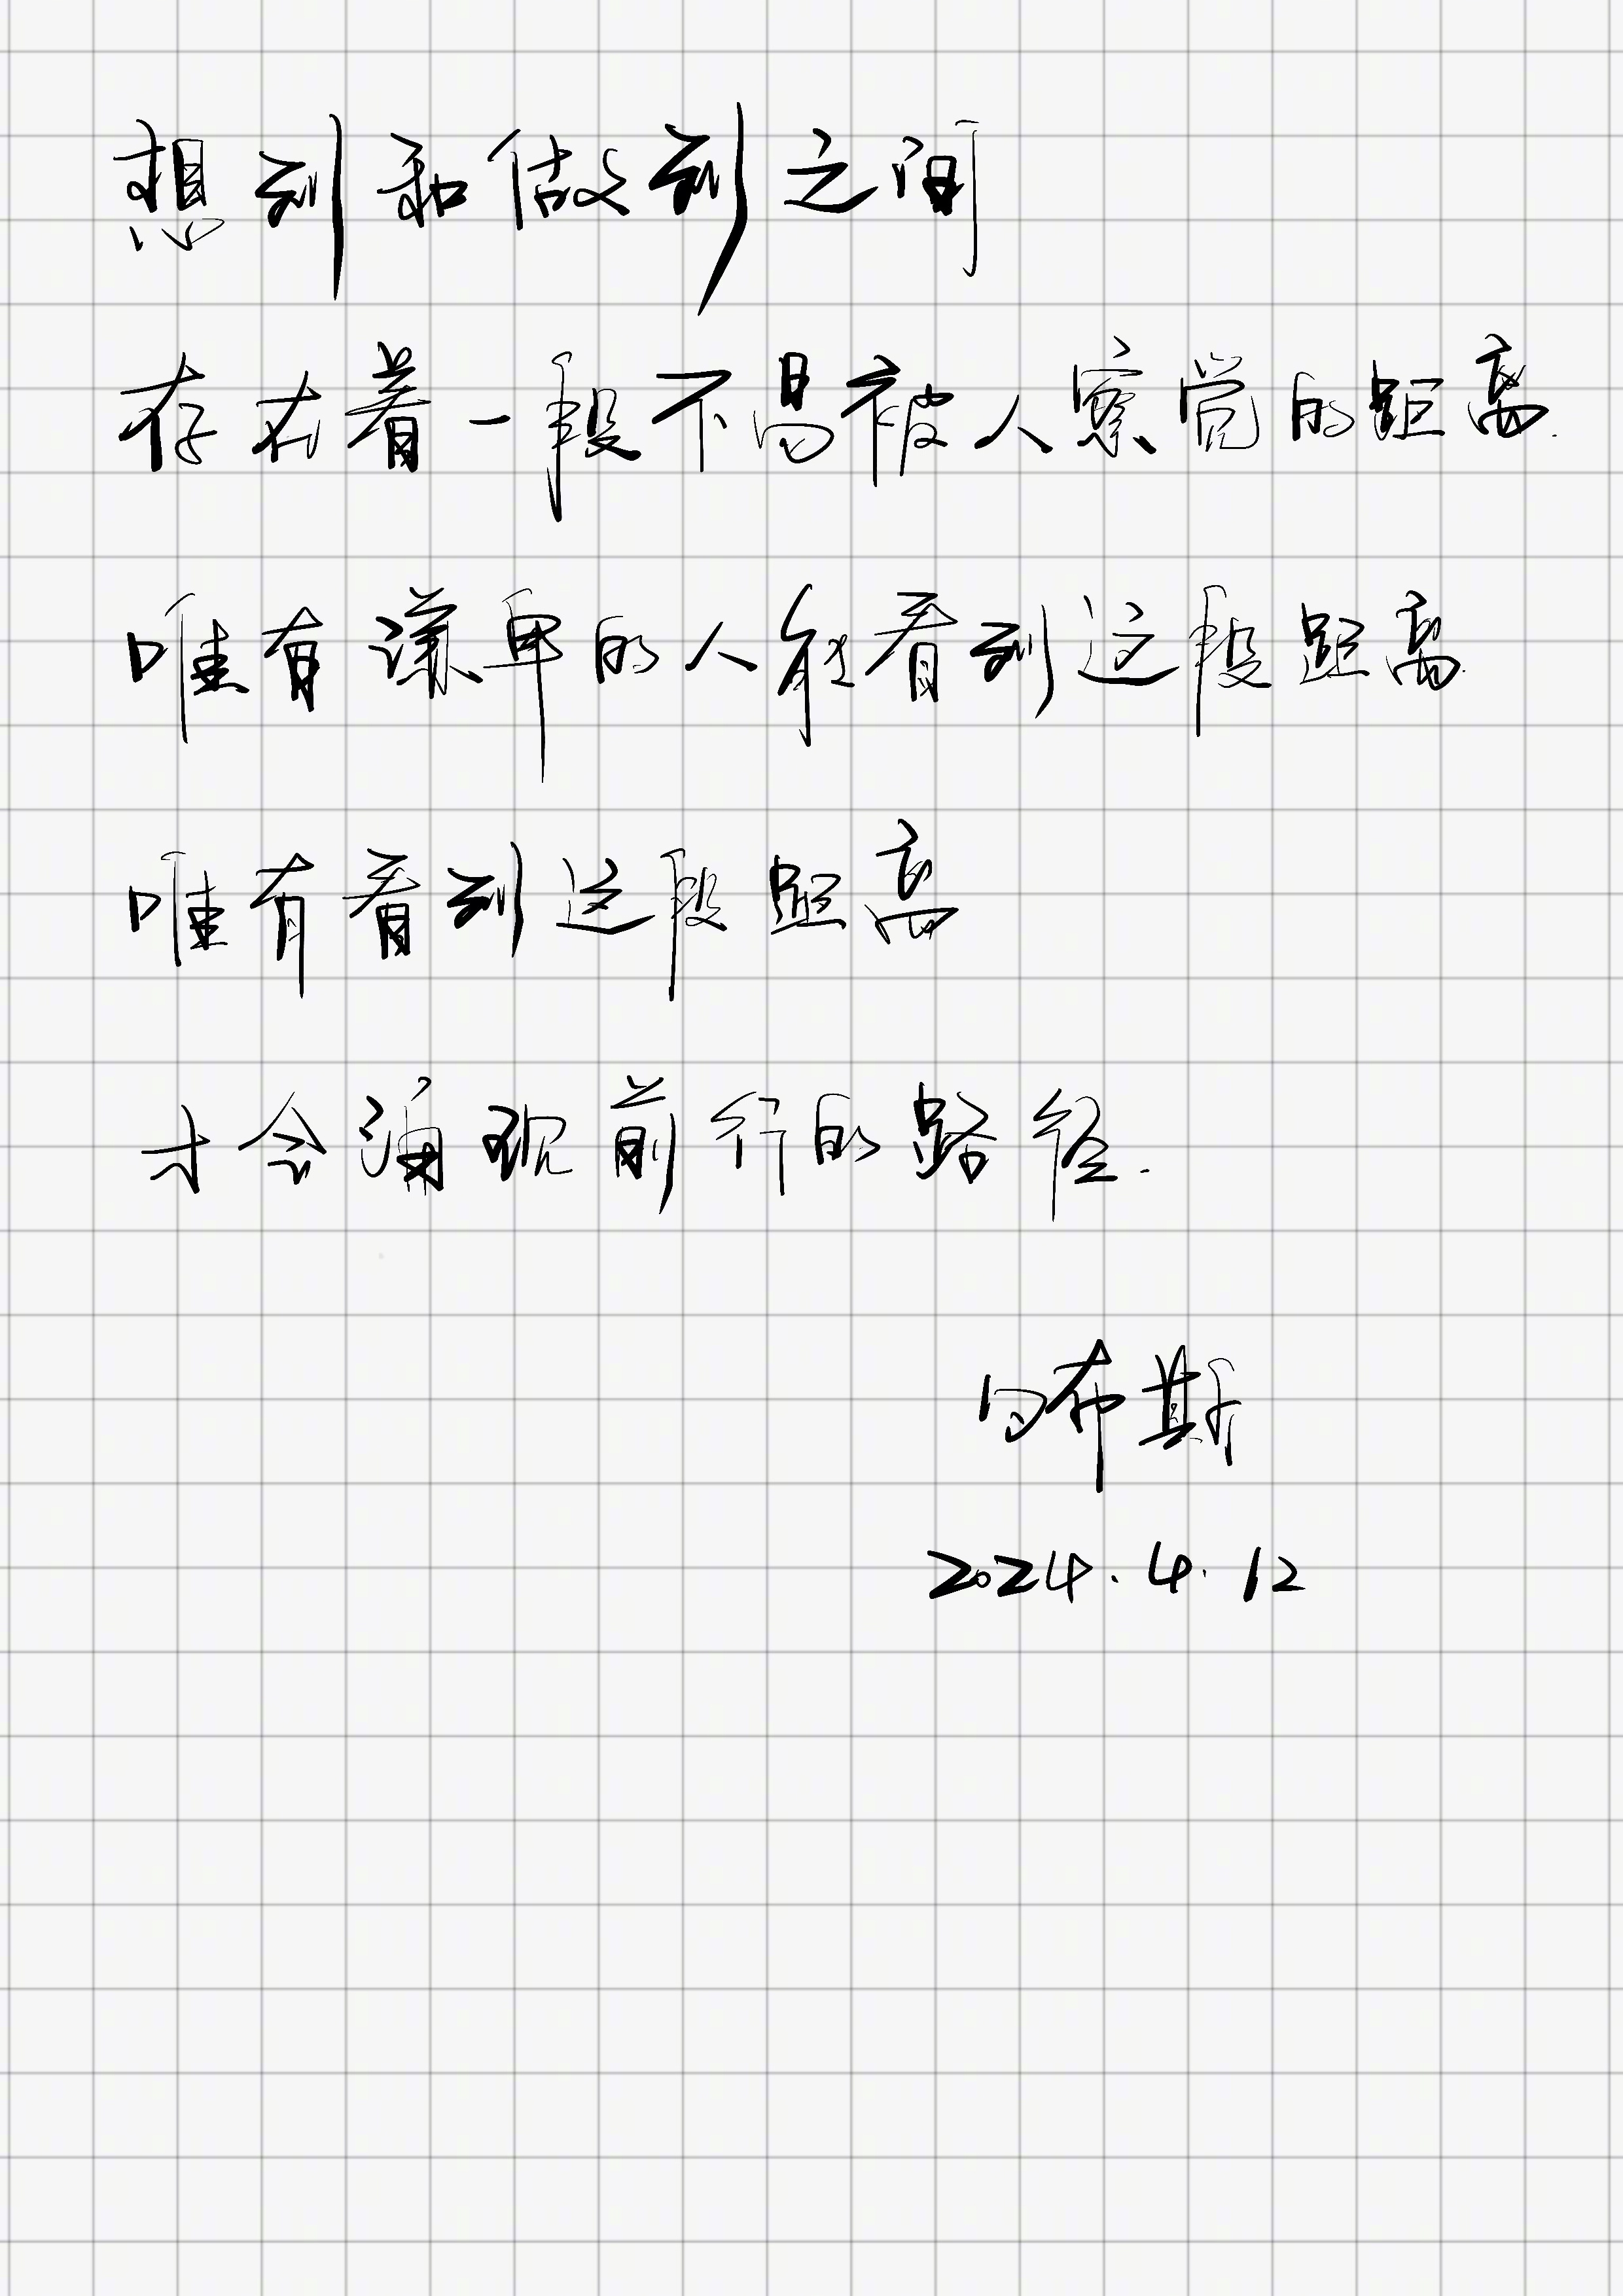 想到和做到之间
存在着一段不易被人察觉的距离.
唯有谦卑的人能看到这段距离
唯有看到这段距离
才会涌现前行的路径.
布斯
2024.4.12